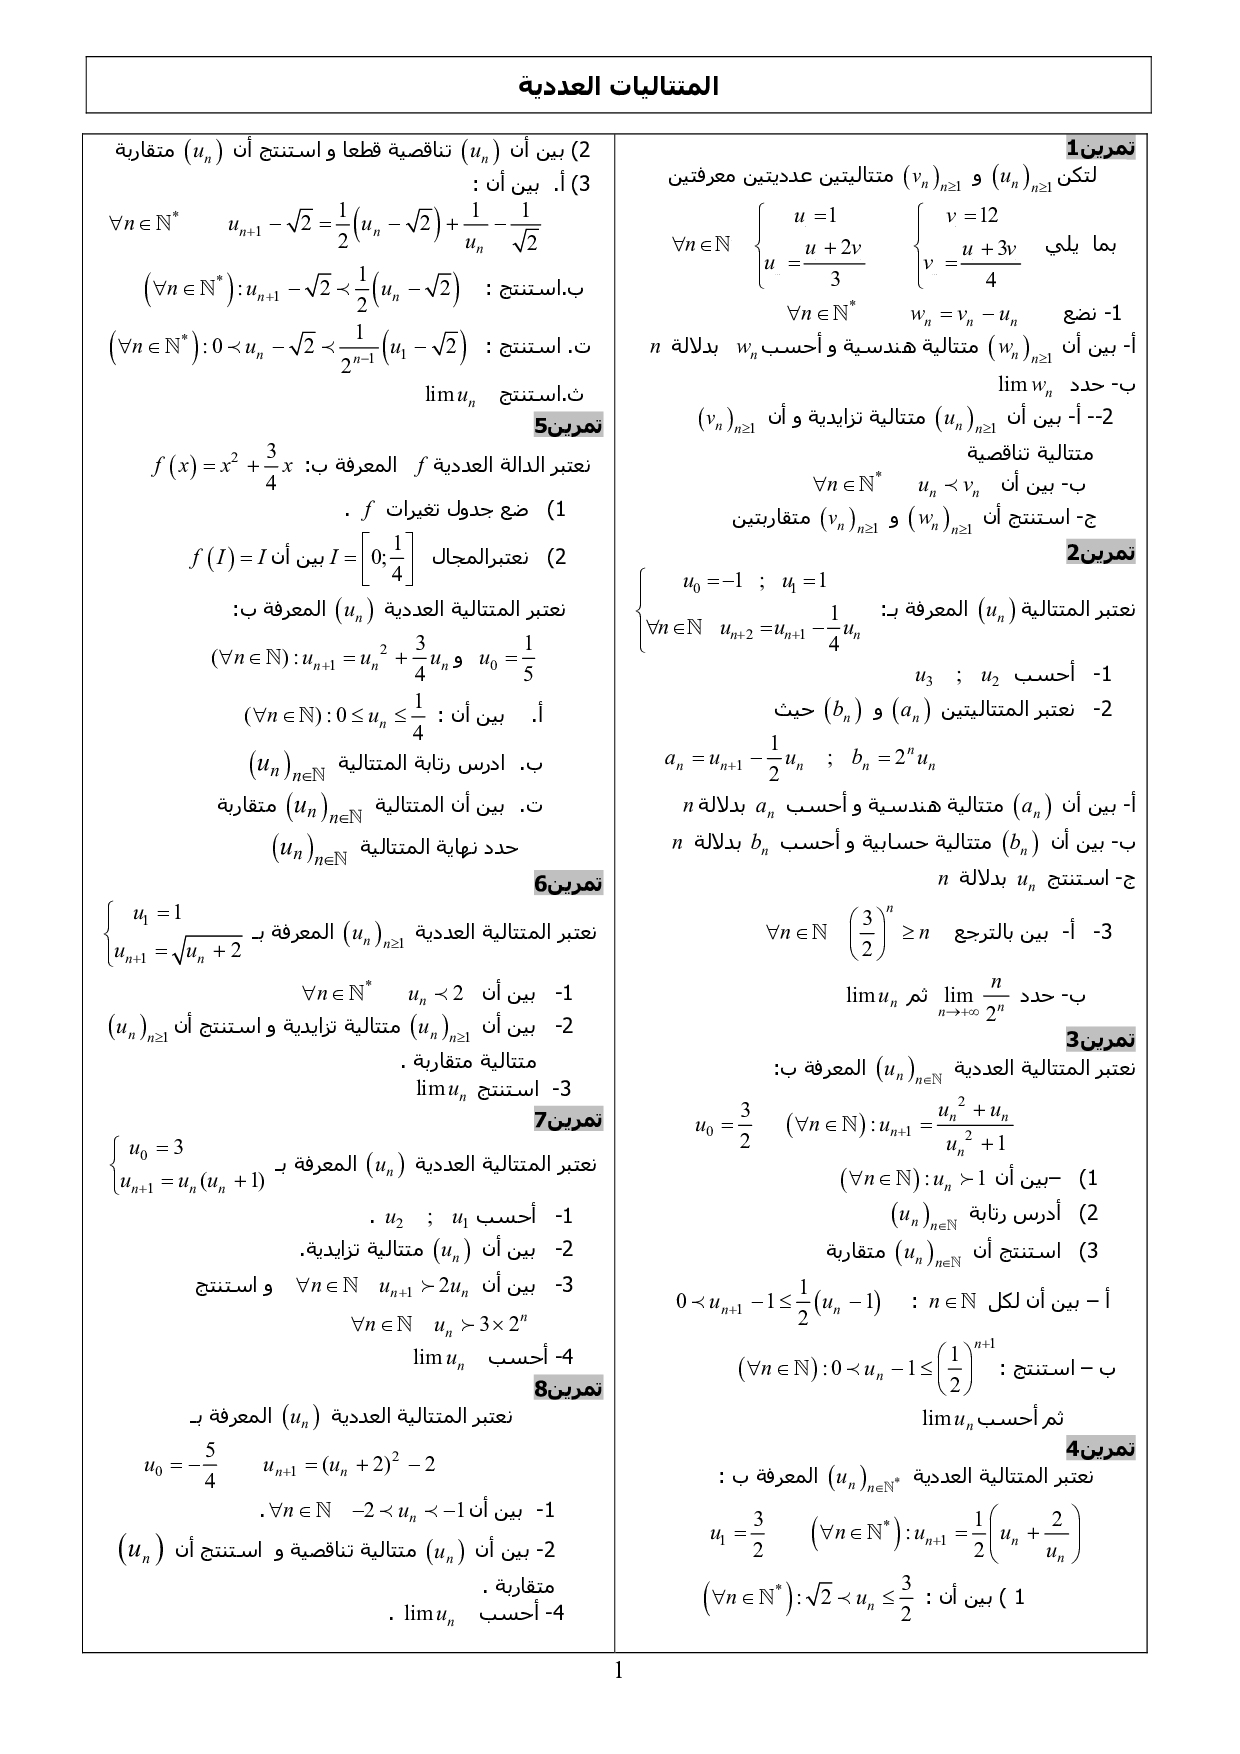 المتتاليات العددية
تمرين1
لتكن (u_n)_{n≥1} و (v_n)_{n≥1} متتاليتين عدديتين معرفتين
بما يلي { v =12 ; v = (u + 3v)/4 { u =1 ; u = (u + 2v)/3 ∀n∈ℕ
1- نضع w_n = v_n − u_n ∀n∈ℕ*
أ- بين أن (w_n)_{n≥1} متتالية هندسية و أحسب w_n بدلالة n
ب- حدد lim w_n
2-- أ- بين أن (u_n)_{n≥1} متتالية تزايدية و أن (v_n)_{n≥1}
متتالية تناقصية
ب- بين أن u_n ≺ v_n ∀n∈ℕ*
ج- استنتج أن (w_n)_{n≥1} و (v_n)_{n≥1} متقاربتين
تمرين2
نعتبر المتتالية (u_n) المعرفة بـ: { u_0 = −1 ; u_1 = 1
∀n∈ℕ u_{n+2} = u_{n+1} − 1/4 u_n
1- أحسب u_2 ; u_3
2- نعتبر المتتاليتين (a_n) و (b_n) حيث
a_n = u_{n+1} − 1/2 u_n ; b_n = 2^n u_n
أ- بين أن (a_n) متتالية هندسية و أحسب a_n بدلالة n
ب- بين أن (b_n) متتالية حسابية و أحسب b_n بدلالة n
ج- استنتج u_n بدلالة n
3- أ- بين بالترجع (3/2)^n ≥ n ∀n∈ℕ
ب- حدد lim_{n→+∞} n/2^n ثم lim u_n
تمرين3
نعتبر المتتالية العددية (u_n)_{n∈ℕ} المعرفة ب:
u_0 = 3/2 (∀n∈ℕ): u_{n+1} = (u_n^2 + u_n)/(u_n^2 + 1)
1) –بين أن (∀n∈ℕ): u_n ≻ 1
2) أدرس رتابة (u_n)_{n∈ℕ}
3) استنتج أن (u_n)_{n∈ℕ} متقاربة
أ – بين أن لكل n∈ℕ : 0 ≺ u_{n+1} − 1 ≤ 1/2 (u_n − 1)
ب – استنتج : (∀n∈ℕ): 0 ≺ u_n − 1 ≤ (1/2)^{n+1}
ثم أحسب lim u_n
تمرين4
نعتبر المتتالية العددية (u_n)_{n∈ℕ*} المعرفة ب :
u_1 = 3/2 (∀n∈ℕ*): u_{n+1} = 1/2 (u_n + 2/u_n)
1 ) بين أن : (∀n∈ℕ*): √2 ≺ u_n ≤ 3/2
2) بين أن (u_n) تناقصية قطعا و استنتج أن (u_n) متقاربة
3) أ. بين أن :
∀n∈ℕ* u_{n+1} − √2 = 1/2 (u_n − √2) + 1/u_n − 1/√2
ب.استنتج : (∀n∈ℕ*): u_{n+1} − √2 ≺ 1/2 (u_n − √2)
ت. استنتج : (∀n∈ℕ*): 0 ≺ u_n − √2 ≺ 1/2^{n−1} (u_1 − √2)
ث.استنتج lim u_n
تمرين5
نعتبر الدالة العددية f المعرفة ب: f(x) = x^2 + 3/4 x
1) ضع جدول تغيرات f .
2) نعتبرالمجال I = [0; 1/4] بين أن f(I) = I
نعتبر المتتالية العددية (u_n) المعرفة ب:
u_0 = 1/5 و (∀n∈ℕ): u_{n+1} = u_n^2 + 3/4 u_n
أ. بين أن : (∀n∈ℕ): 0 ≤ u_n ≤ 1/4
ب. ادرس رتابة المتتالية (u_n)_{n∈ℕ}
ت. بين أن المتتالية (u_n)_{n∈ℕ} متقاربة
حدد نهاية المتتالية (u_n)_{n∈ℕ}
تمرين6
نعتبر المتتالية العددية (u_n)_{n≥1} المعرفة بـ { u_1 = 1 ; u_{n+1} = √(u_n + 2)
1- بين أن u_n ≺ 2 ∀n∈ℕ*
2- بين أن (u_n)_{n≥1} متتالية تزايدية و استنتج أن (u_n)_{n≥1}
متتالية متقاربة .
3- استنتج lim u_n
تمرين7
نعتبر المتتالية العددية (u_n) المعرفة بـ { u_0 = 3 ; u_{n+1} = u_n(u_n + 1)
1- أحسب u_1 ; u_2 .
2- بين أن (u_n) متتالية تزايدية.
3- بين أن u_{n+1} ≻ 2u_n ∀n∈ℕ و استنتج
∀n∈ℕ u_n ≻ 3×2^n
4- أحسب lim u_n
تمرين8
نعتبر المتتالية العددية (u_n) المعرفة بـ
u_0 = −5/4 u_{n+1} = (u_n + 2)^2 − 2
1- بين أن −2 ≺ u_n ≺ −1 ∀n∈ℕ .
2- بين أن (u_n) متتالية تناقصية و استنتج أن (u_n)
متقاربة .
4- أحسب lim u_n .
1